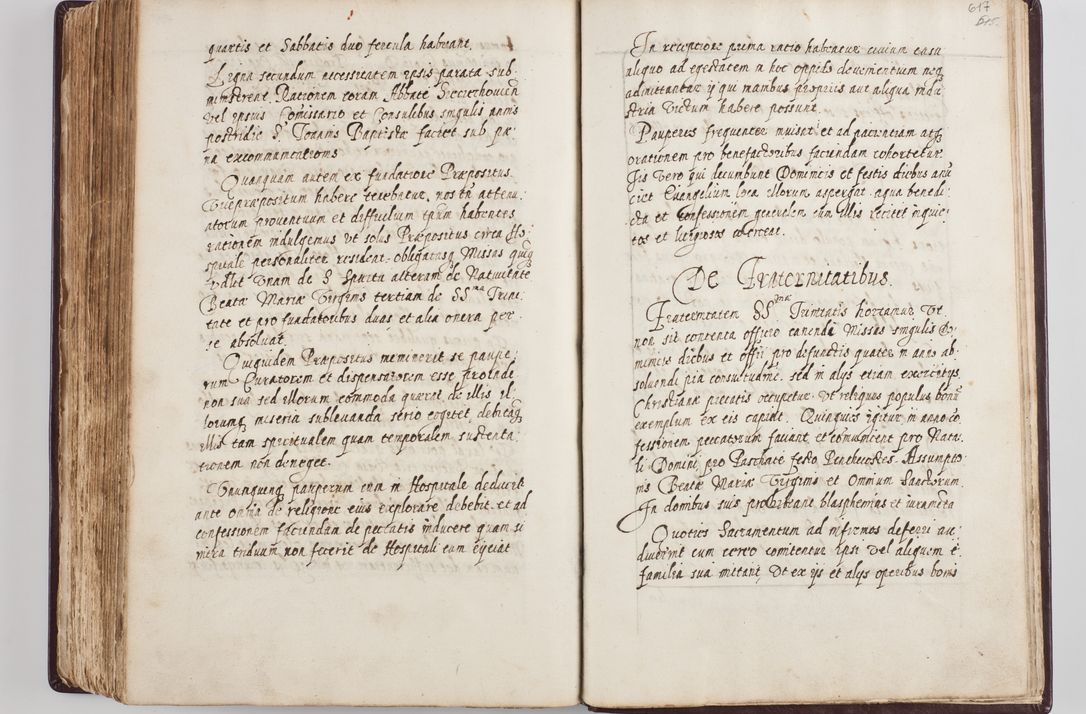 quartis et Sabbatis duo fercula habeant.
Ligna secundum necessitatem ipsis parata sub-
ministrent. Rationem coram Abbate
vel ipsius Comissario et Consulibus singulis annis
postridie S. Joannis Baptistæ faciet sub pœ-
na excommunicationis
Quanquam autem ex fundatione Præpositus
Vicepræpositum habere tenebatur, nos tn̄ attenu-
atorum proventuum et difficilium tp̄rum habentes
rationem indulgemus ut solus Præpositus circa Ho-
spitale personaliter resideat, obligatasq; Missas quinq;
videlt Unam de S. Spiritu alteram de Nativitate
Beatæ Mariæ Virginis tertiam de SS.ma Trini-
tate et pro fundatoribus duas, et alia onera per
se absoluat.
Quiquidem Præpositus meminerit se paupe-
rum Curatorem et dispensatorem esse, proinde
non sua sed illorum commoda querat, de illis il-
lorumq; miseria sublevanda serio cogitet, debitāq;
illis tam spiritualem quam temporalem sustenta-
tionem non deneget.
Unumquenq; pauperum cum in Hospitale deducit
ante omnia de religione eius explorare debebit, et ad
confessionem faciendam de peccatis inducere quam si
intra triduum non fecerit de Hospitali eum eijciat
617
In receptione prima ratio habeatur civium casu
aliquo ad egestatem in hoc oppido devenientium neq;
admittantur ij qui manibus proprijs aut aliqua indu-
stria victum habere possunt.
Pauperes frequenter invisat, et ad patientiam atq;
orationem pro benefactoribus faciendam cohortetur.
His vero qui decumbunt Dominicis et festis diebus
Evangelium loca illorum aspergat aqua benedi-
cta et Confessionem generalem cum illis recitet inquie-
tos et litigiosos coerceat.
De Fraternitatibus.
Fraternitatem SS.mæ Trinitatis hortamur Ut
non sit contenta officio canendi Missas singulis Do-
minicis diebus et offī pro defunctis quater in anno ab-
solvendi pia consuetudine, sed in alijs etiam exercitijs
Christianæ pietatis occupetur, Ut reliquus populus bonū
exemplum ex eis capiat. Quinquies igitur in anno co-
fessionem peccatorum faciant, et comunicent pro Nata-
li Domini, pro Paschate festo Penthecostes, Assumptio-
nis Beatæ Mariæ Virginis et Omnium Sanctorum.
In domibus suis prohibeant blasphemias et iuramēta
Quoties Sacramentum ad infirmos deferri au-
diverint cum cereo comitentur ipsi vel aliquem è
familia sua mittant, Ut ex ijs et alijs operibus bonis